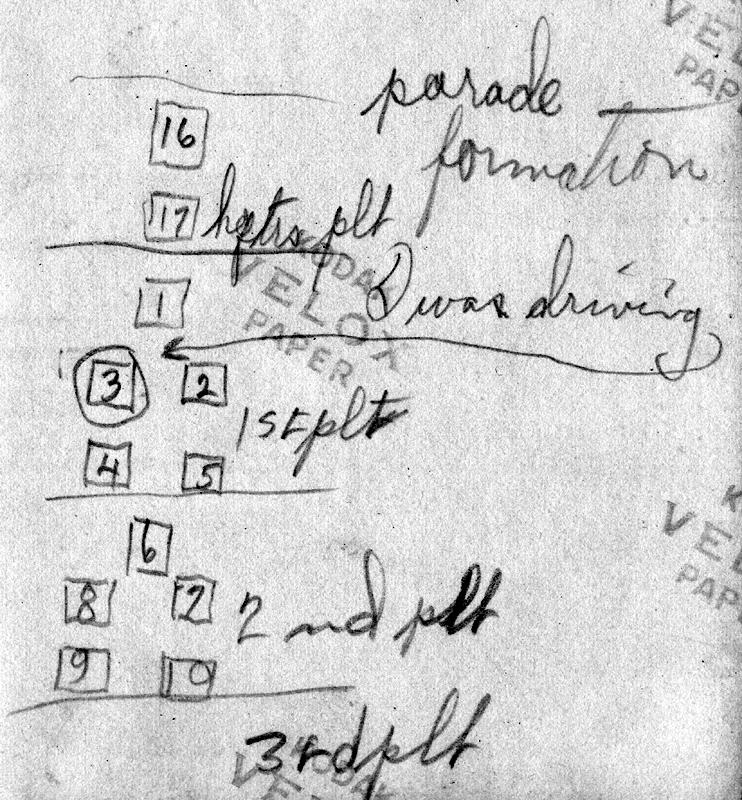 VE
PAP
parade
formation
16
17 hqtrs plt
KODAK
VELOX
PAPER
I was driving
1
3 2
1st plt
4 5
K
VE
PAP
6
8 7 2nd plt
9 10
3rd plt
KODAK
VE